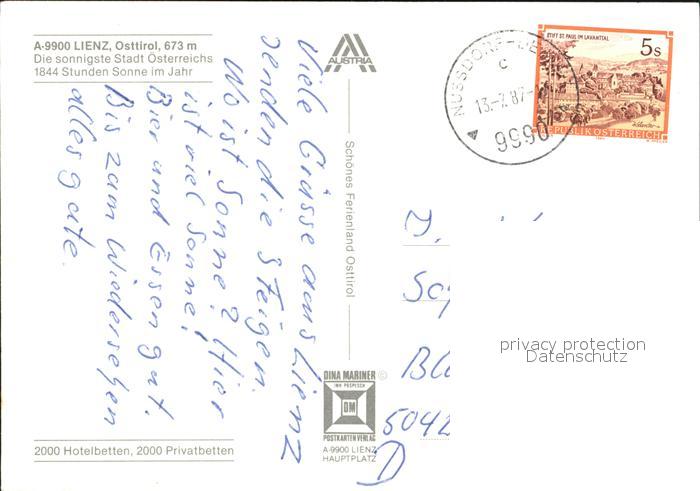 A-9900 LIENZ, Osttirol, 673 m
Die sonnigste Stadt Österreichs
1844 Stunden Sonne im Jahr
Viele Grüsse aus Lienz
senden die Steigen.
Wo ist Sonne? Hier
ist viel Sonne,
Bier und Essen gut.
Bis zum Wiedersehen
alles gute.
2000 Hotelbetten, 2000 Privatbetten
AUSTRIA
Schönes Ferienland Osttirol
DINA MARINER ©
INH. POSPESCH
DM
POSTKARTENVERLAG
A-9900 LIENZ
HAUPTPLATZ
NUSSDORF-DE
C
13.-7.87-
9990
STIFT ST. PAUL IM LAVANTTAL
5s
REPUBLIK ÖSTERREICH
5042
D
privacy protection
Datenschutz